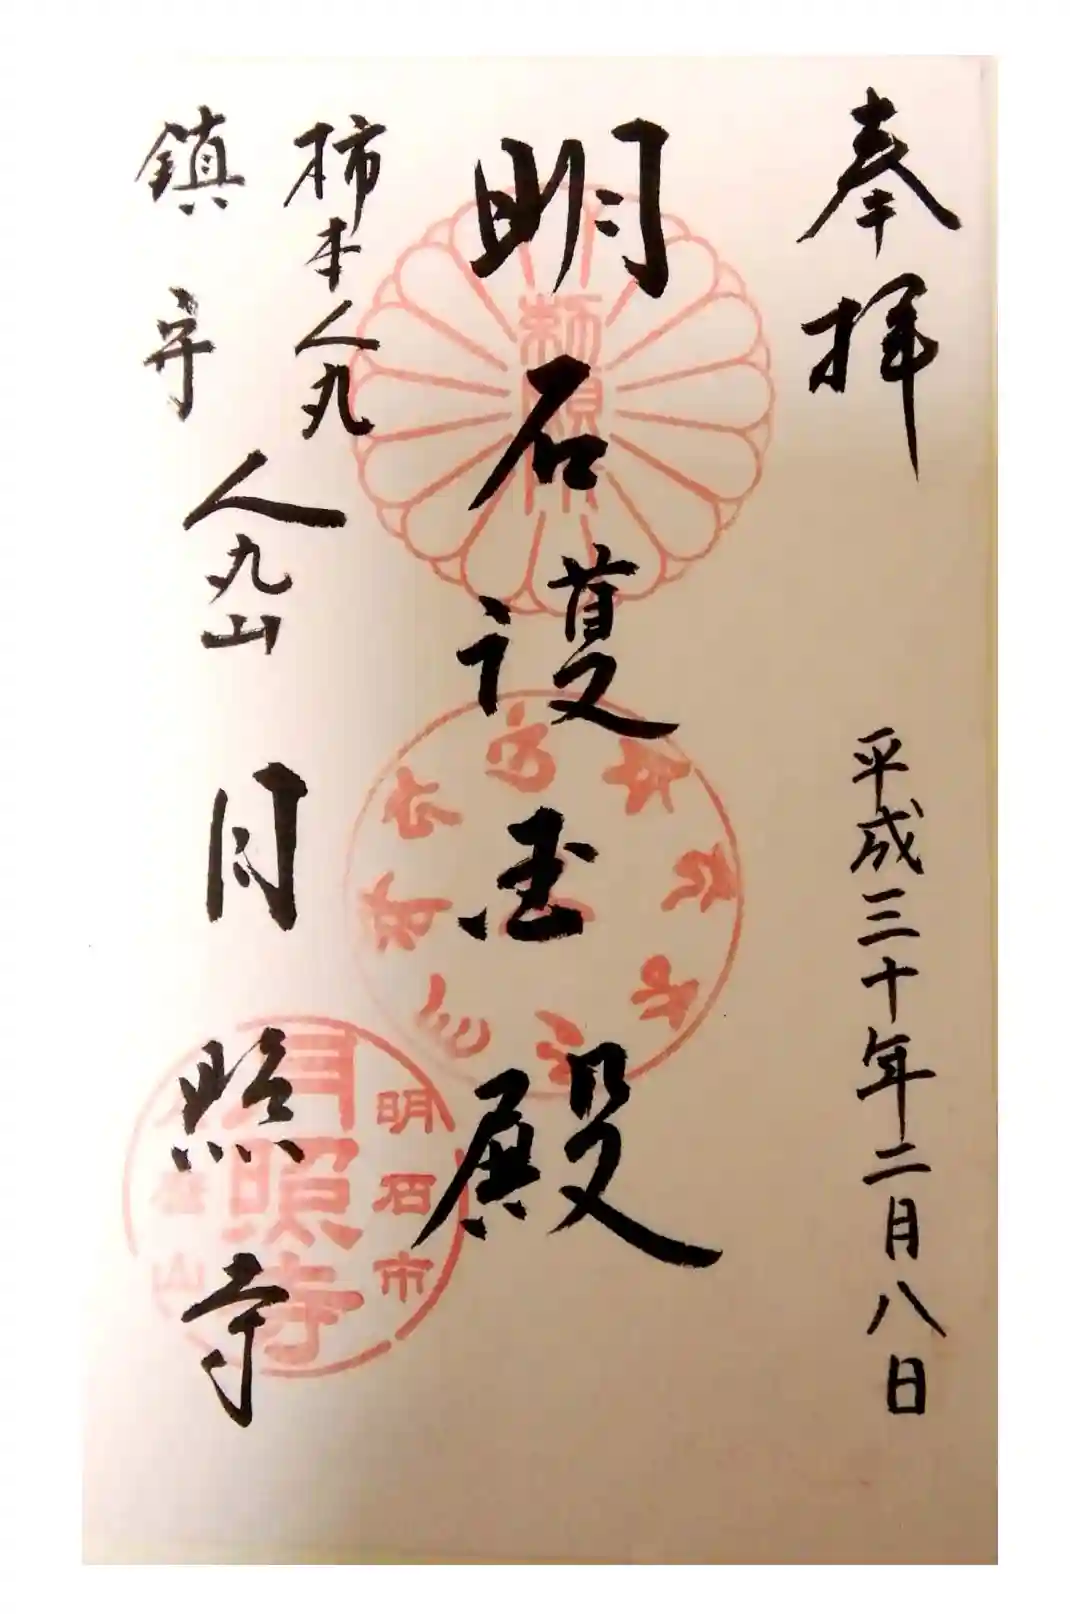 奉拝
平成三十年二月八日
明石護国殿
柿本人丸
鎮守
人丸山
月照寺
勅願所
明石市
月照寺